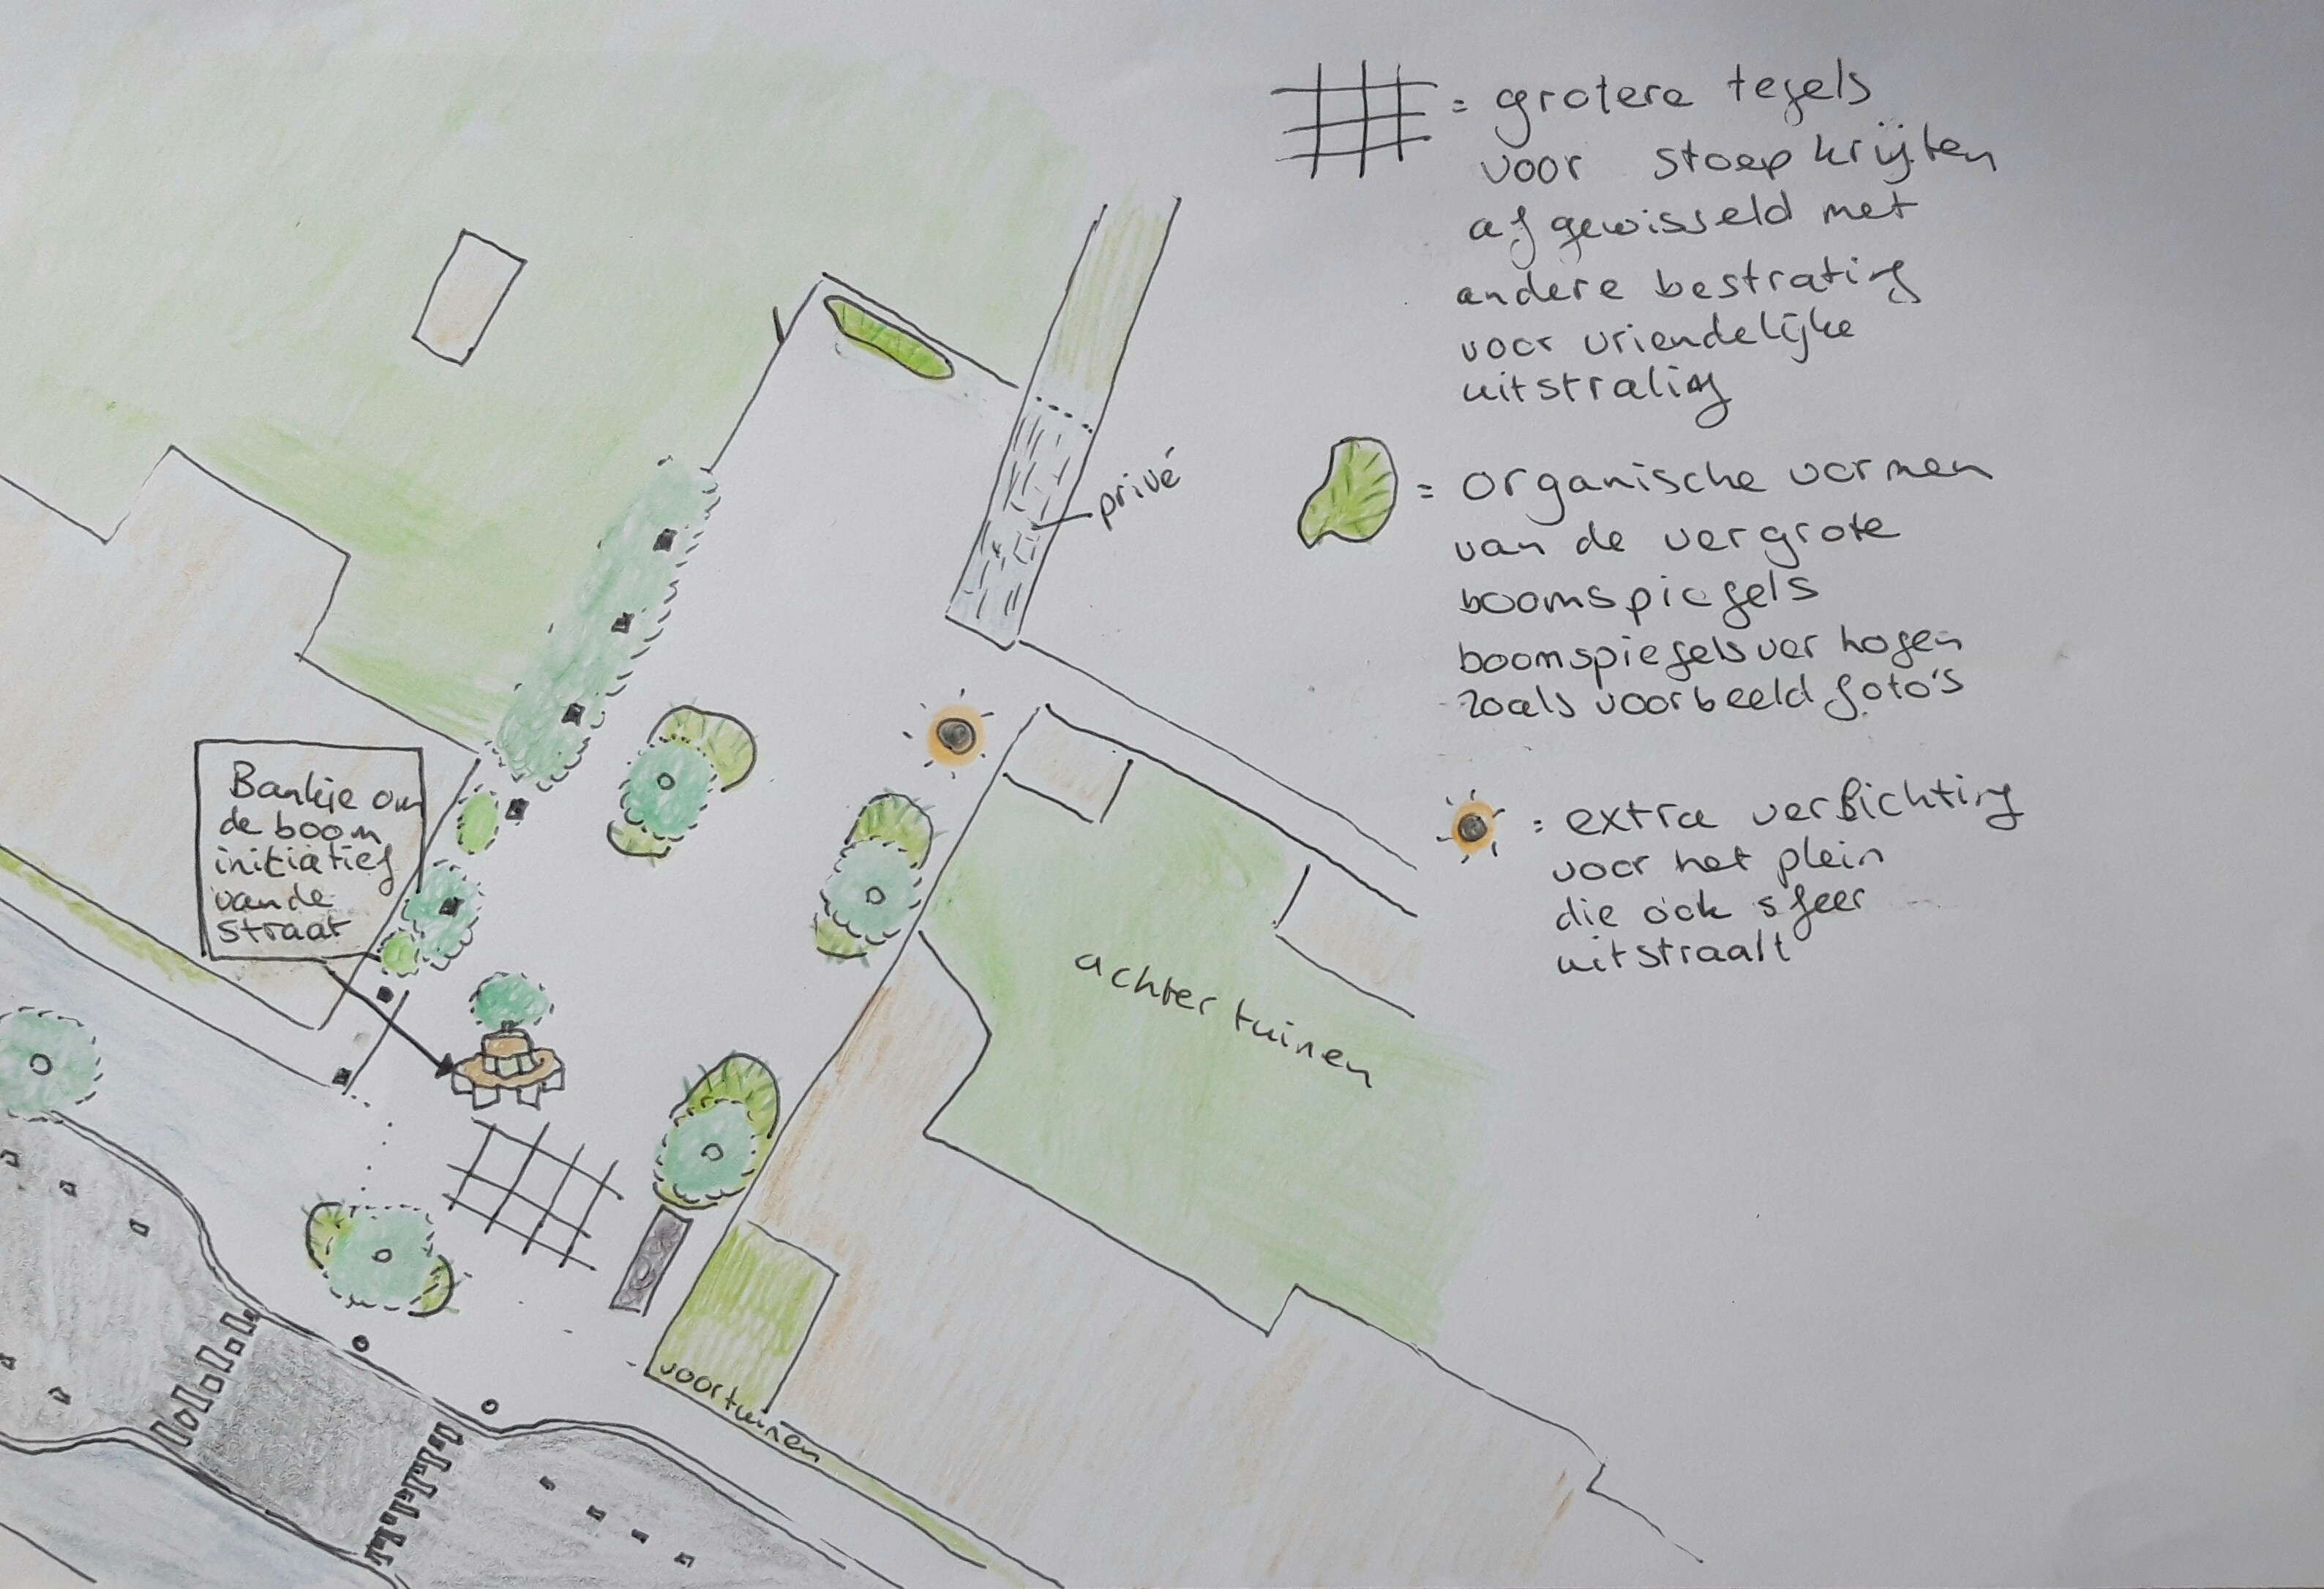 = grotere tegels
voor stoepkrijten
afgewisseld met
andere bestrating
voor vriendelijke
uitstraling
privé
= organische vormen
van de vergrote
boomspiegels
boomspiegels verhogen
zoals voorbeeld foto's
Bankje om
de boom
initiatief
van de
straat
= extra verlichting
voor het plein
die ook sfeer
uitstraalt
achtertuinen
voortuinen